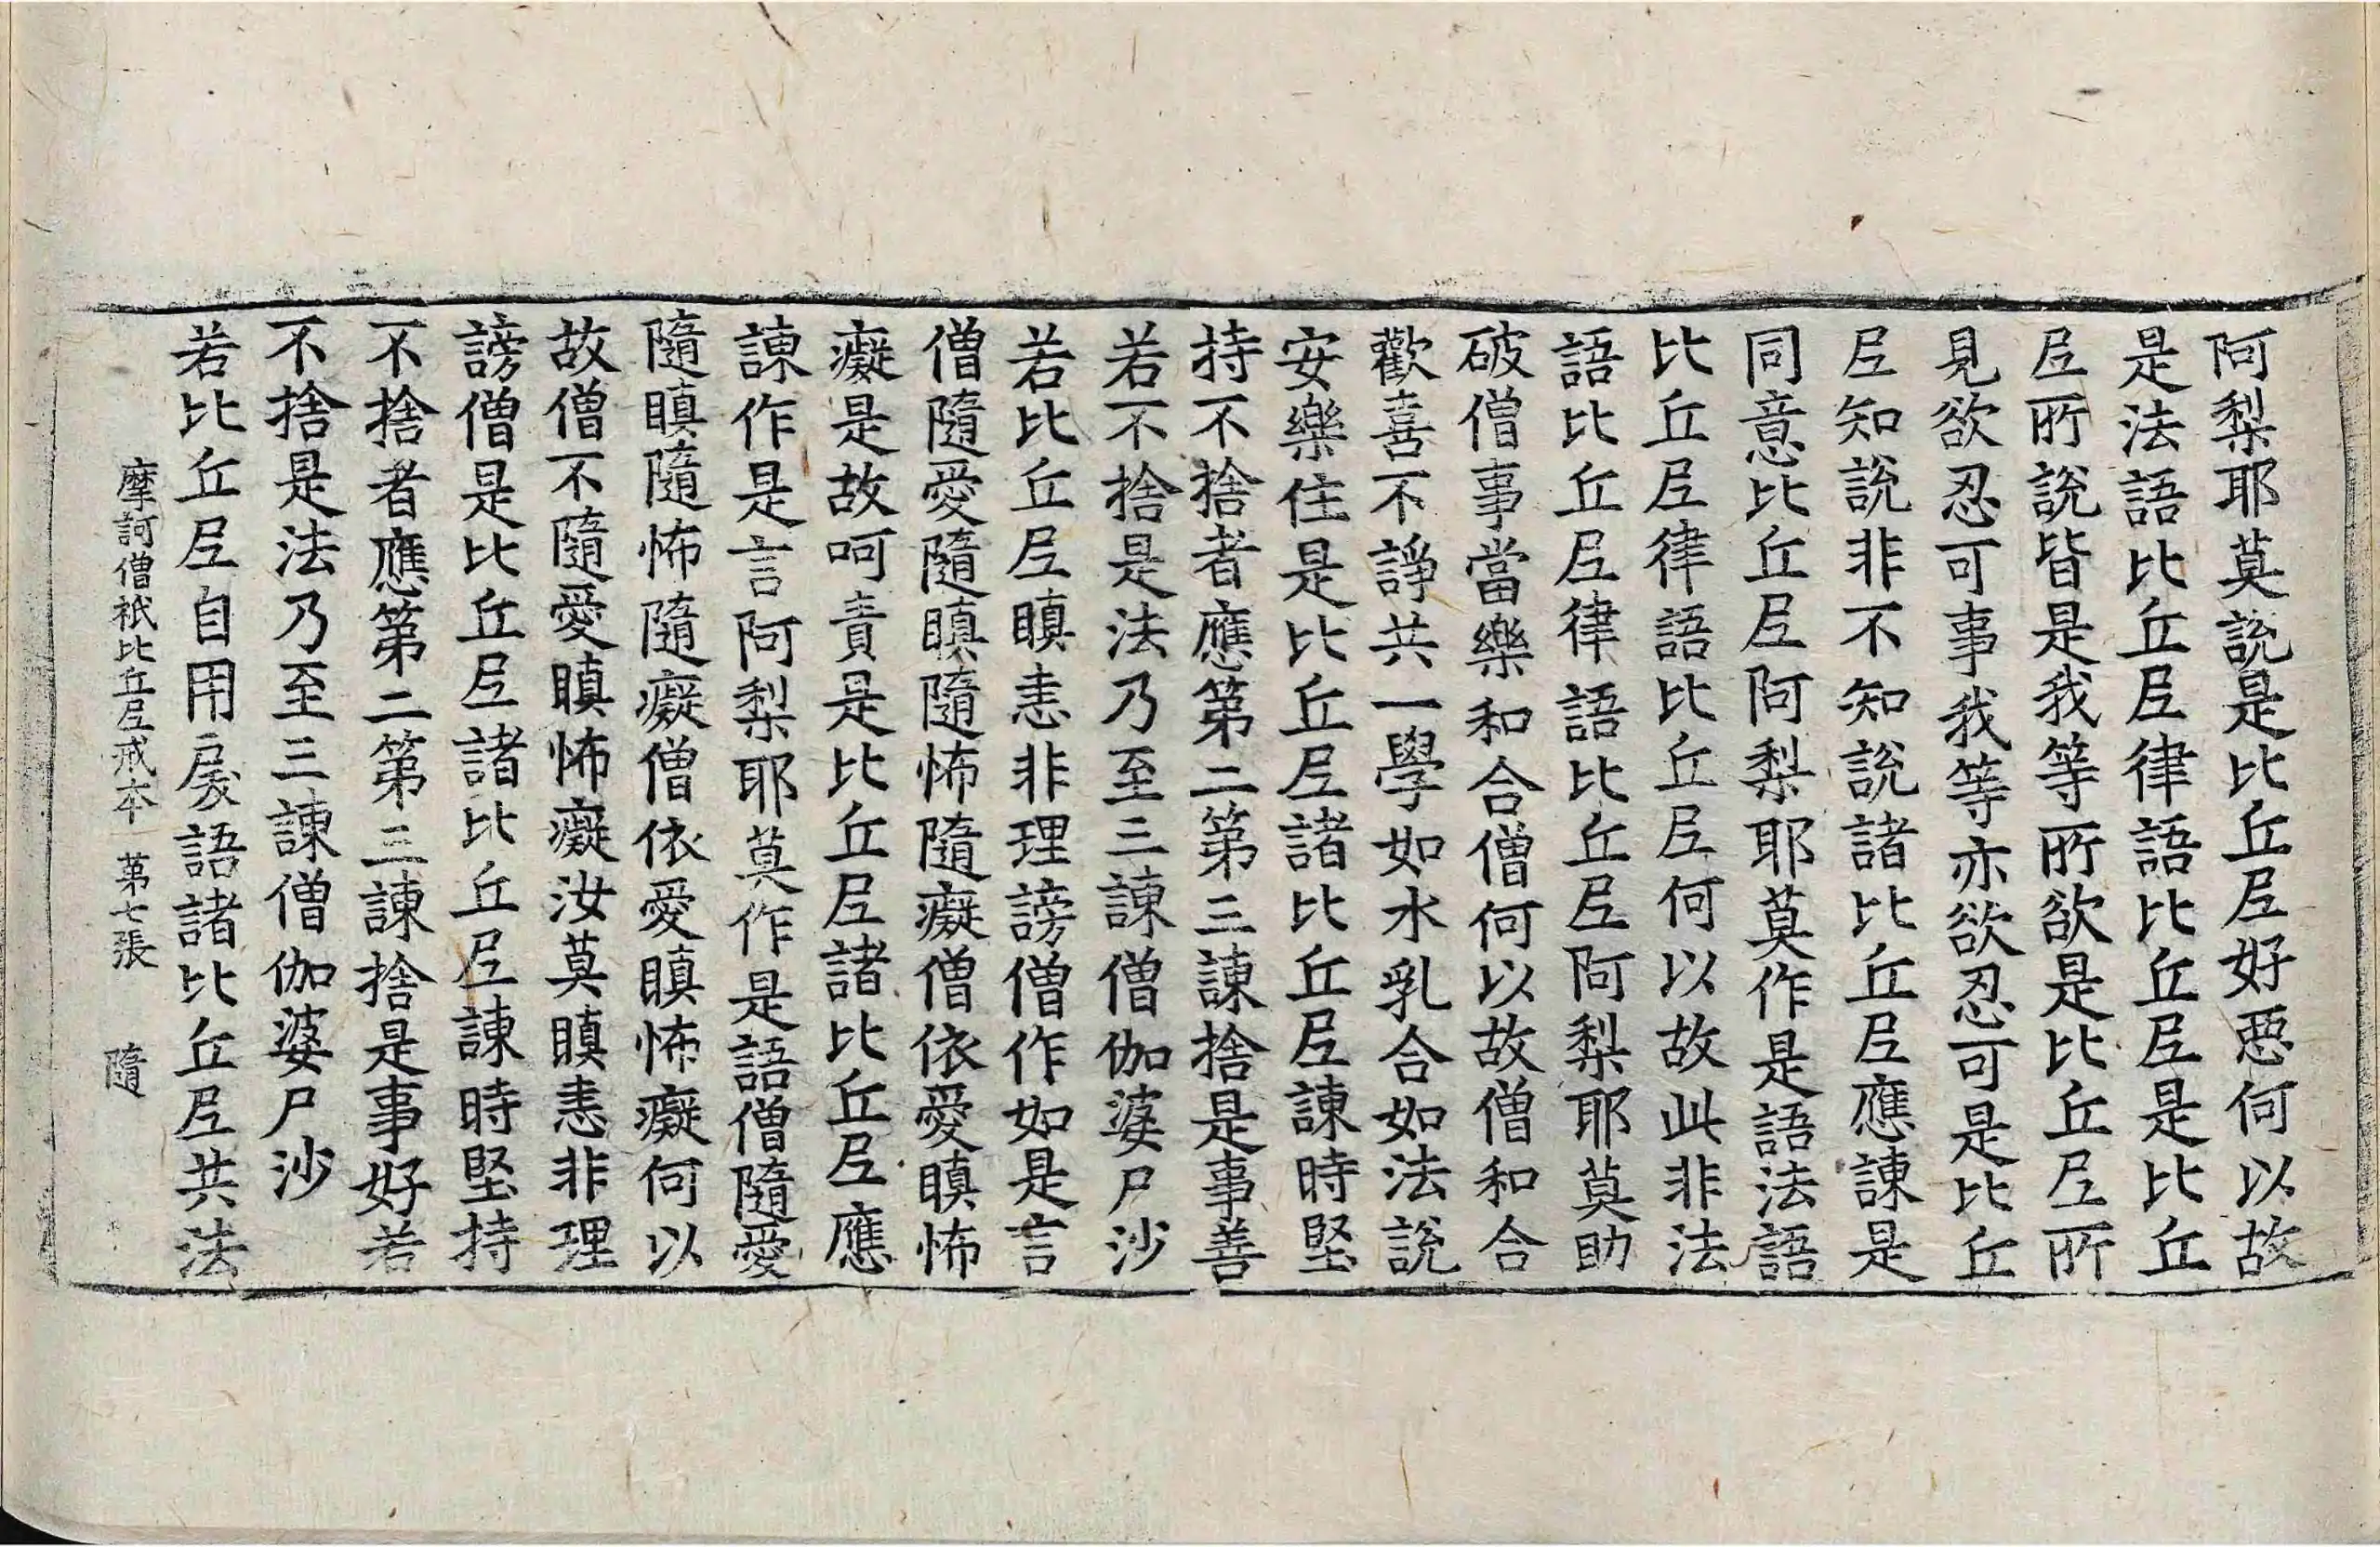 阿梨耶莫說是比丘𡰱好惡何以故
是法語比丘𡰱律語比丘𡰱是比丘
𡰱所說皆是我等所欲是比丘𡰱所
見欲忍可事我等亦欲忍可是比丘
𡰱知說非不知說諸比丘𡰱應諫是
同意比丘𡰱阿梨耶莫作是語法語
比丘𡰱律語比丘𡰱何以故此非法
語比丘𡰱律語比丘𡰱阿梨耶莫助
破僧事當樂和合僧何以故僧和合
歡喜不諍共一學如水乳合如法說
安樂住是比丘𡰱諸比丘𡰱諫時堅
持不捨者應第二第三諫捨是事善
若不捨是法乃至三諫僧伽婆尸沙
若比丘𡰱瞋恚非理謗僧作如是言
僧隨愛隨瞋隨怖隨癡僧依愛瞋怖
癡是故呵責是比丘𡰱諸比丘𡰱應
諫作是言阿梨耶莫作是語僧隨愛
隨瞋隨怖隨癡僧依愛瞋怖癡何以
故僧不隨愛瞋怖癡汝莫瞋恚非理
謗僧是比丘𡰱諸比丘𡰱諫時堅持
不捨者應第二第三諫捨是事好若
不捨是法乃至三諫僧伽婆尸沙
若比丘𡰱自用戾語諸比丘𡰱共法
摩訶僧祇比丘𡰱戒本 第七張 隨